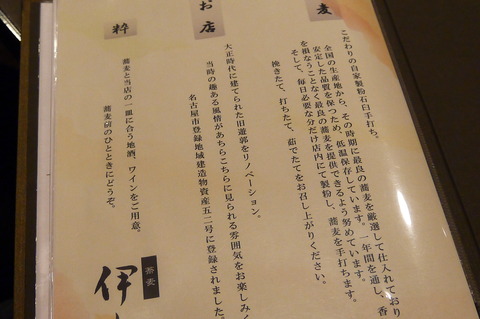 麦
こだわりの自家製粉石臼手打ち。
全国の生産地から、その時期に最良の蕎麦を厳選して仕入れており
安定した品質を保つため、低温保存しています。一年間を通し、香
を損なうことなく最良の蕎麦を提供できるよう努めています。
そして、毎日必要な分だけ店内にて製粉し、蕎麦を手打ちます。
挽きたて、打ちたて、茹でたてをお召し上がりください。
お店
大正時代に建てられた旧遊郭をリノベーション。
当時の趣ある風情があちらこちらに見られる雰囲気をお楽しみく
名古屋市登録地域建造物資産五二号に登録されました。
粋
蕎麦と当店の一皿に合う地酒、ワインをご用意。
蕎麦硏のひとときにどうぞ。
蕎麦
伊